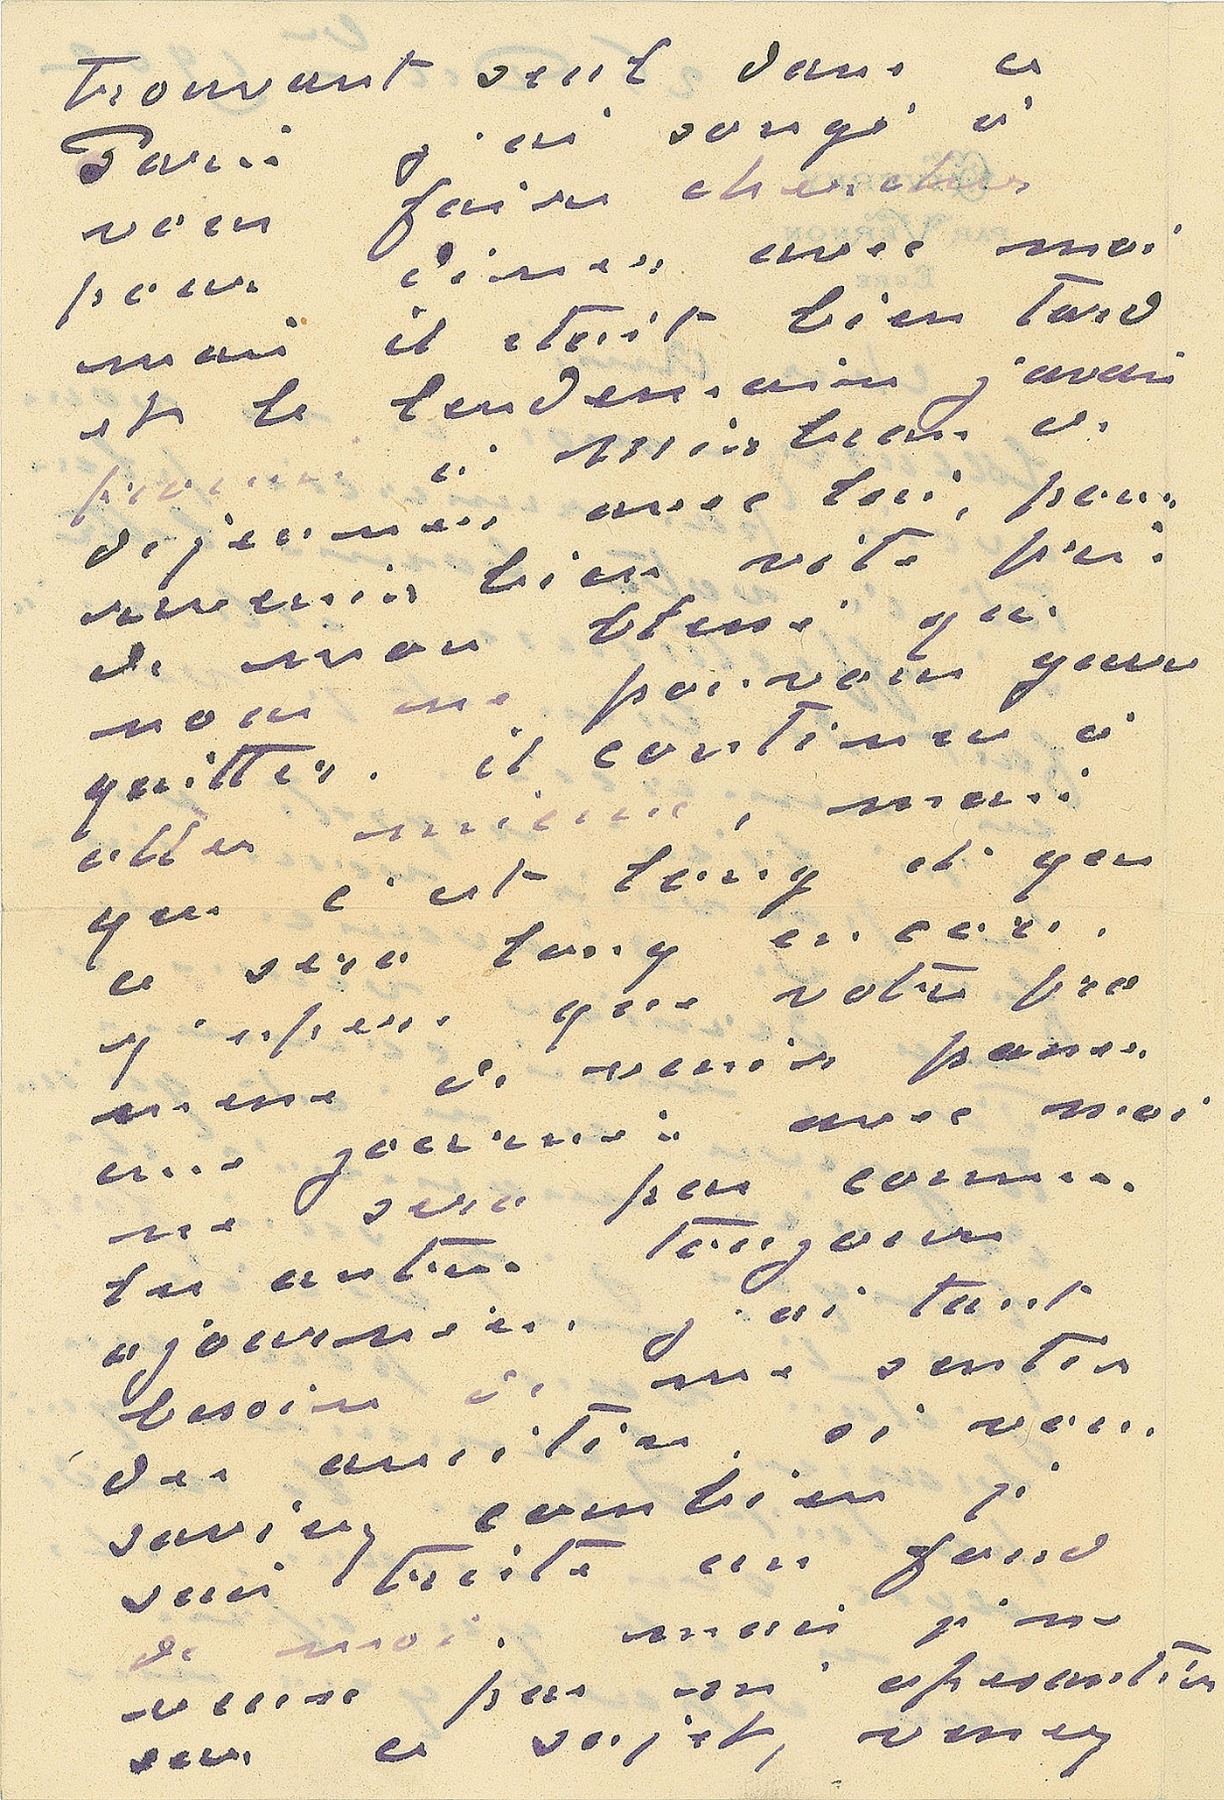 trouvant seul dans ce
Paris j'ai songé à
vous faire chercher
pour dîner avec moi
mais il était bien tard
et le lendemain j'avais
promis à
déjeuner avec lui, pour
revenir bien vite près
de mon blessé que
nous ne pouvons guère
quitter. il continue à
aller mieux, mais
que c'est long et que
ce sera long encore.
j'espère que votre pro
messe de venir passer
une journée avec moi
ne sera pas comme
les autres toujours
ajournée. j'ai tant
besoin de me sentir
des amitiés. si vous
saviez combien je
suis triste au fond
de moi. mais je ne
veux pas m'apesantir
sur ce sujet, venez
GIVERNY
PAR VERNON
EURE